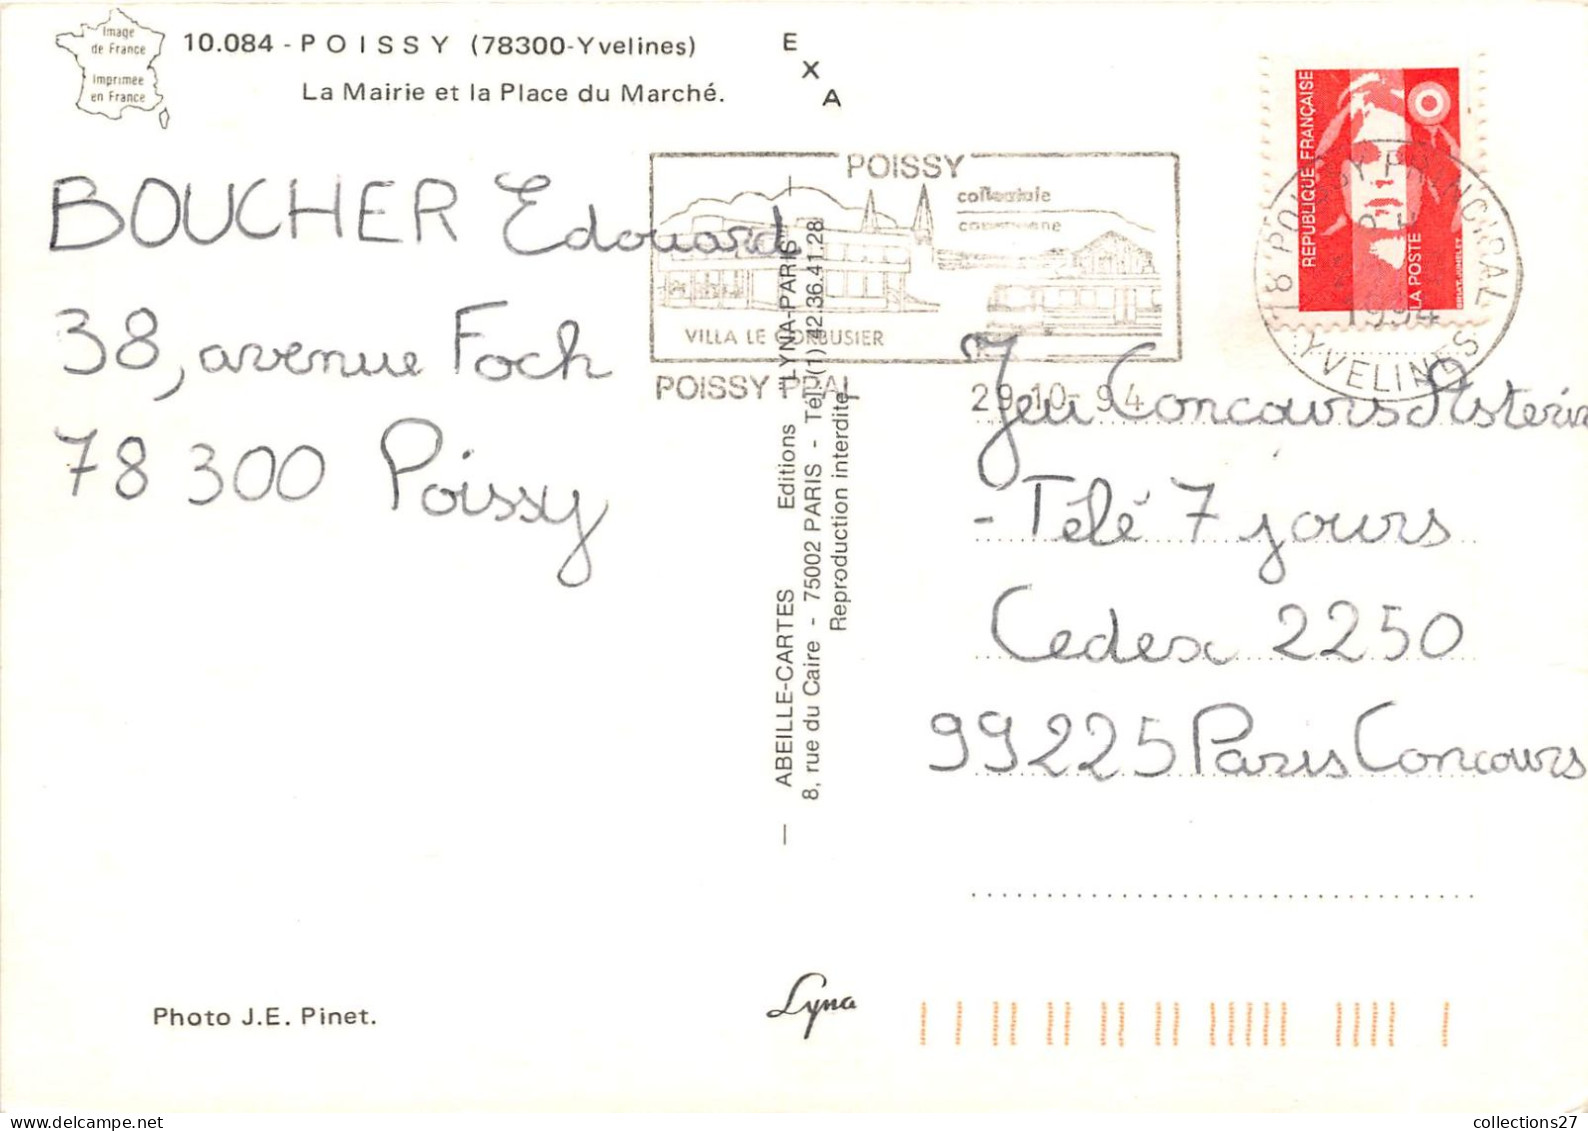 Image
de France
Imprimée
en France
10.084 - POISSY (78300-Yvelines)
La Mairie et la Place du Marché.
E
X
A
BOUCHER Edouard
38, avenue Foch
78 300 Poissy
POISSY
collégiale
VILLA LE CORBUSIER
POISSY PPAL
29-10-94
RÉPUBLIQUE FRANÇAISE
LA POSTE
78 POISSY PRINCIPAL
1994
YVELINES
Jeu Concours Asterix
- Télé 7 jours
Cedex 2250
99225 Paris Concours
— ABEILLE-CARTES Editions "LYNA-PARIS" —
8, rue du Caire - 75002 PARIS - Tél. (1) 42.36.41.28
Reproduction interdite
Photo J.E. Pinet.
Lyna
collections27